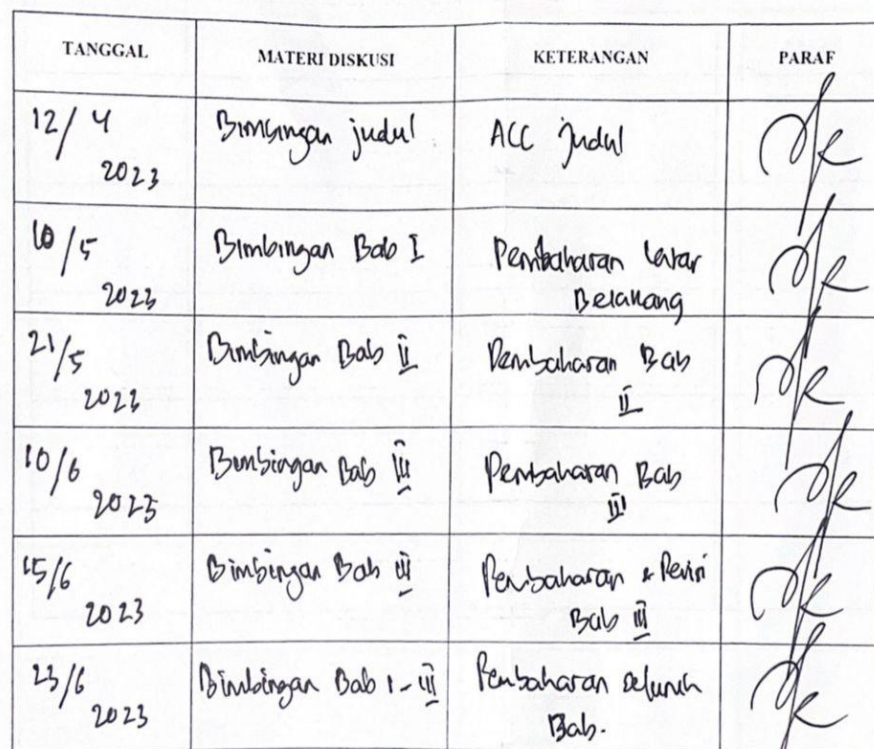 TANGGAL MATERI DISKUSI KETERANGAN PARAF
12/4 Bimbingan judul ACC Judul
2023
10/5 Bimbingan Bab I Pembaharan Latar
2023 Belakang
21/5 Bimbingan Bab II Pembaharan Bab
2023 II
10/6 Bimbingan Bab III Pembaharan Bab
2023 III
15/6 Bimbingan Bab III Pembaharan & Revisi
2023 Bab III
23/6 Bimbingan Bab I - III Pembaharan seluruh
2023 Bab.